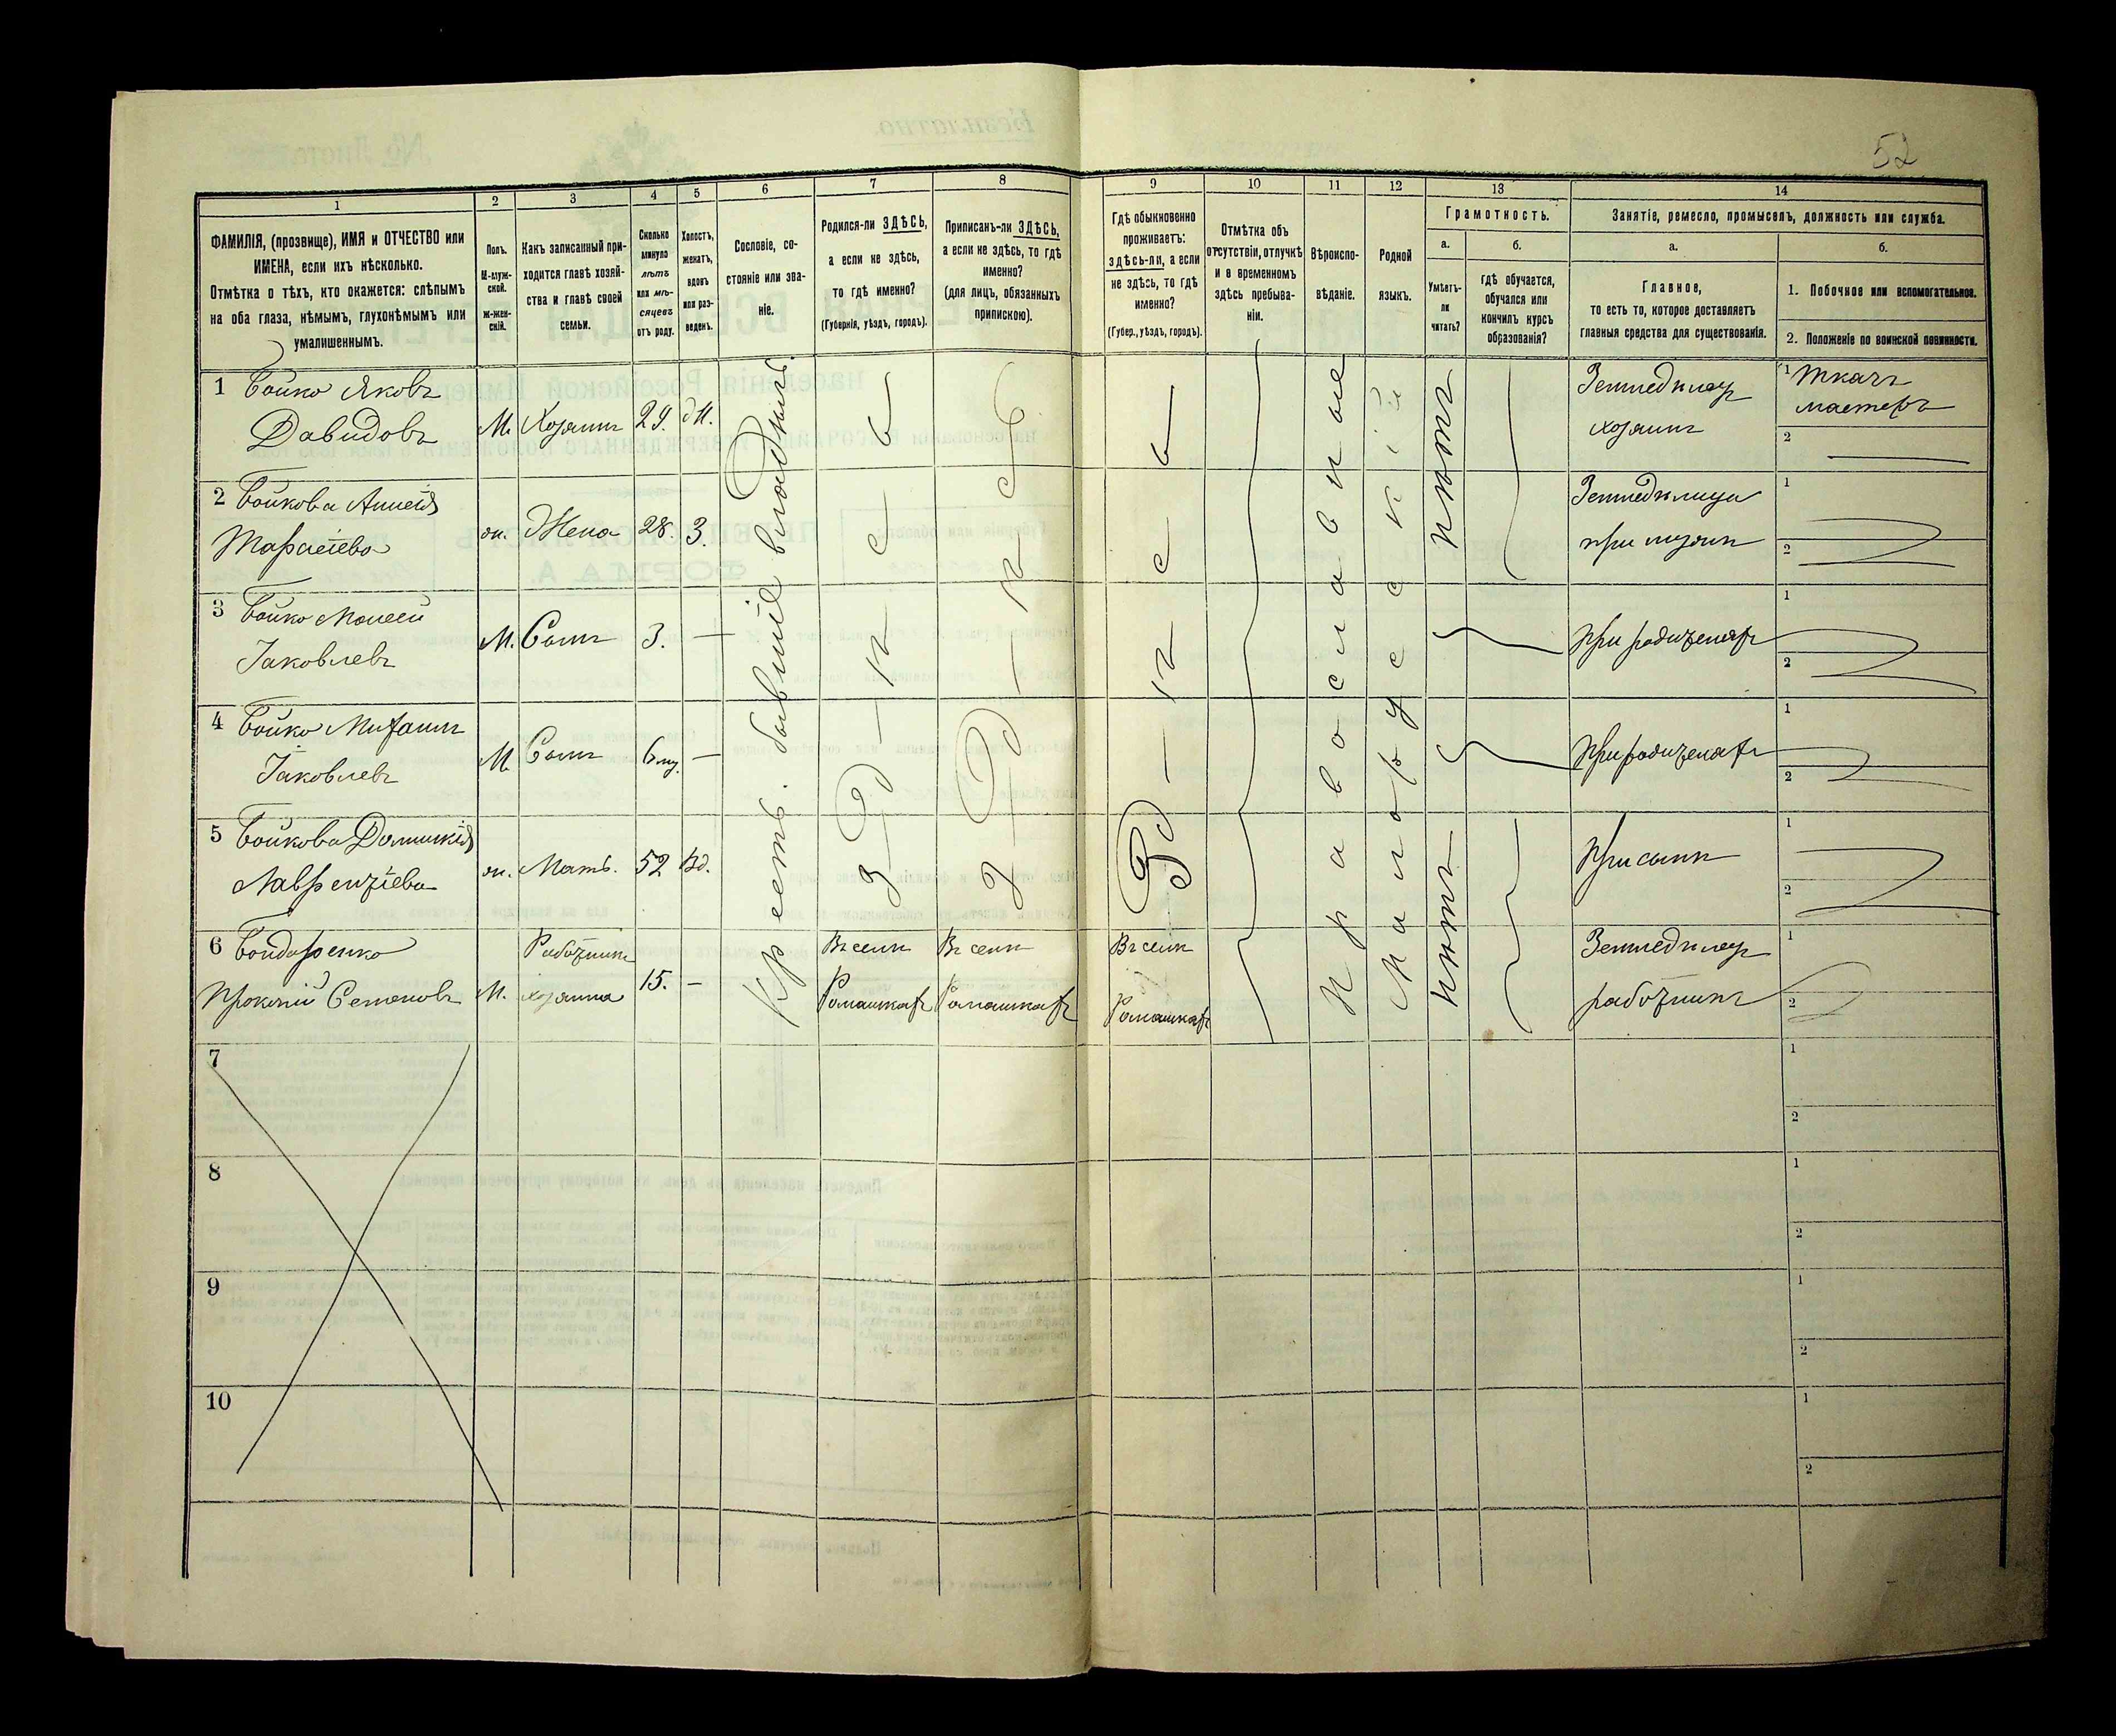 52
1
2
3
4
5
6
7
8
9
10
11
12
13
14
ФАМИЛІЯ, (прозвище), ИМЯ и ОТЧЕСТВО или
ИМЕНА, если ихъ нѣсколько.
Отмѣтка о тѣхъ, кто окажется: слѣпымъ
на оба глаза, нѣмымъ, глухонѣмымъ или
умалишеннымъ.
Полъ.
М-муж-
ской.
Ж-жен-
скій.
Какъ записанный при-
ходится главѣ хозяй-
ства и главѣ своей
семьи.
Сколько
минуло
лѣтъ
или мѣ-
сяцевъ
отъ роду.
Холостъ,
женатъ,
вдовъ
или раз-
веденъ.
Сословіе, со-
стояніе или зва-
ніе.
Родился-ли ЗДѢСЬ,
а если не здѣсь,
то гдѣ именно?
(Губернія, уѣздъ, городъ).
Приписанъ-ли ЗДѢСЬ,
а если не здѣсь, то гдѣ
именно?
(для лицъ, обязанныхъ
припискою).
Гдѣ обыкновенно
проживаетъ:
здѣсь-ли, а если
не здѣсь, то гдѣ
именно?
(Губер., уѣздъ, городъ).
Отмѣтка объ
отсутствіи, отлучкѣ
и в временномъ
здѣсь пребыва-
ніи.
Вѣроиспо-
вѣданіе.
Родной
языкъ.
Грамотность.
а.
б.
Умѣетъ-
ли
читать?
гдѣ обучается,
обучался или
кончилъ курсъ
образованія?
Занятіе, ремесло, промыселъ, должность или служба.
а.
б.
Главное,
то есть то, которое доставляетъ
главныя средства для существованія.
1. Побочное или вспомогательное.
2. Положеніе по воинской повинности.
1 Бойко Яковъ
Давидовъ
М. Хозяинъ 29. Ж.
Земледѣлецъ
хозяинъ
1 Ткачъ
мастеръ
2
2 Бойкова
ж. Жена 28. З.
Земледѣлица
при мужѣ
1
2
3 Бойко Моисей
Іаковлевъ
М. Сынъ 3. —
При родителяхъ
1
2
4 Бойко Михаилъ
Іаковлевъ
М. Сынъ 6 м. —
При родителяхъ
1
2
5 Бойкова Домникія
Лаврентіева
ж. Мать. 52 Вд.
При сынѣ
1
2
6 Бондаренко
Прокопій Семеновъ
М. Работникъ
хозяина
15. —
Въ селѣ
Ромашкахъ
Въ селѣ
Ромашкахъ
Въ селѣ
Ромашкахъ
Земледѣлецъ
работникъ
1
2
Крест. бывшіе владѣльч.
З д ѣ с ь
З д ѣ с ь
З д ѣ с ь
Православное
Малорусскій
нѣтъ
нѣтъ
7
1
2
8
1
2
9
1
2
10
1
2